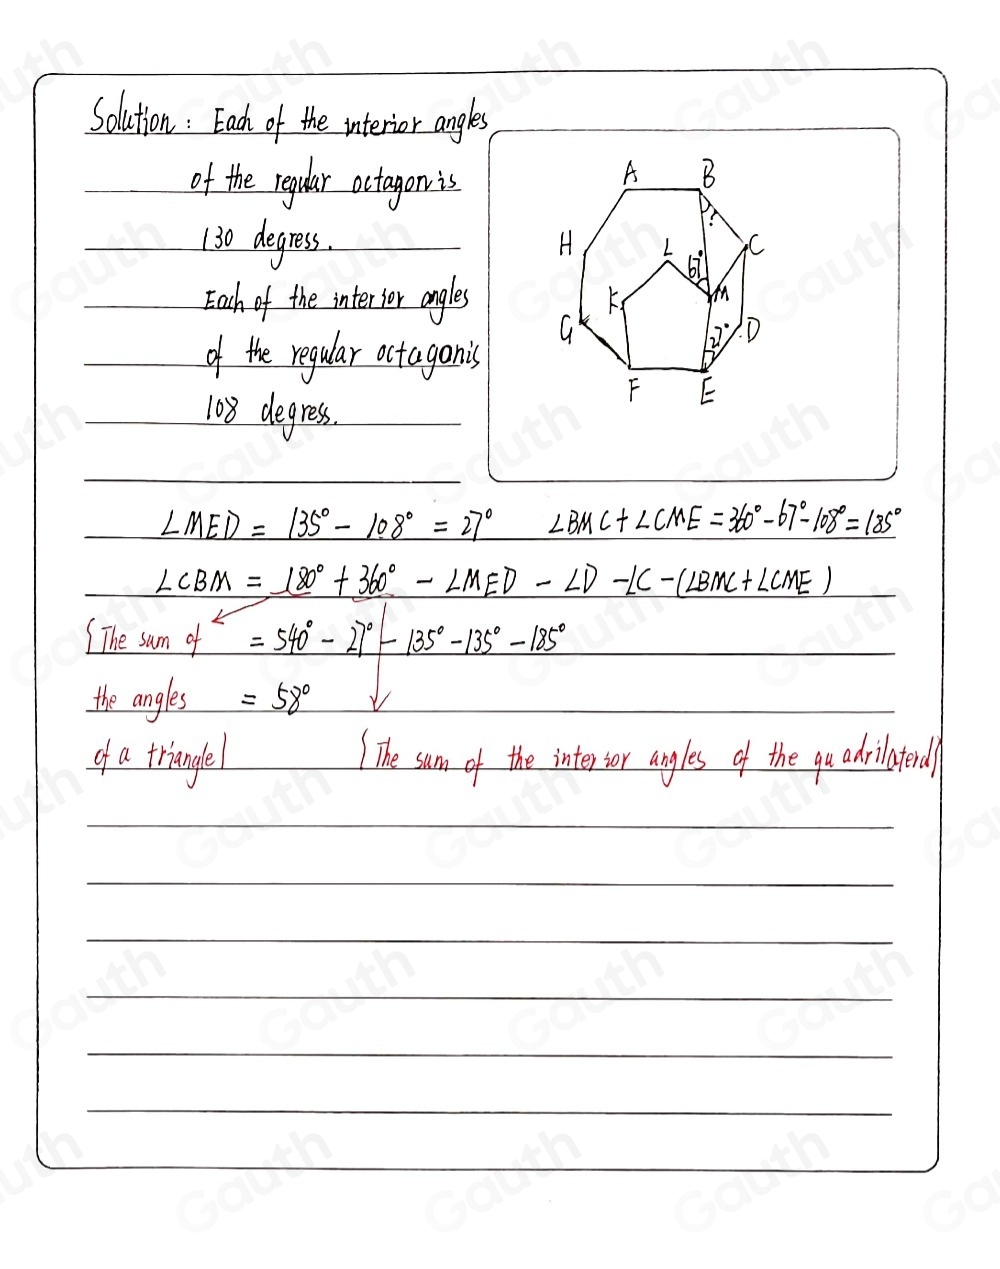 Solution: Each of the interior angles
of the regular octagon is
130 degress.
Each of the interior angles
of the regular octagonis
108 degress.
A B
H L C
?
67°
K M
G 27° D
F E
∠MED = 135° - 108° = 27° ∠BMC + ∠CME = 360° - 67° - 108° = 185°
∠CBM = 180° + 360° - ∠MED - ∠D - ∠C - (∠BMC + ∠CME)
{The sum of = 540° - 27° - 135° - 135° - 185°
the angles = 58°
of a triangle} {The sum of the interior angles of the quadrilateral}
Gauth